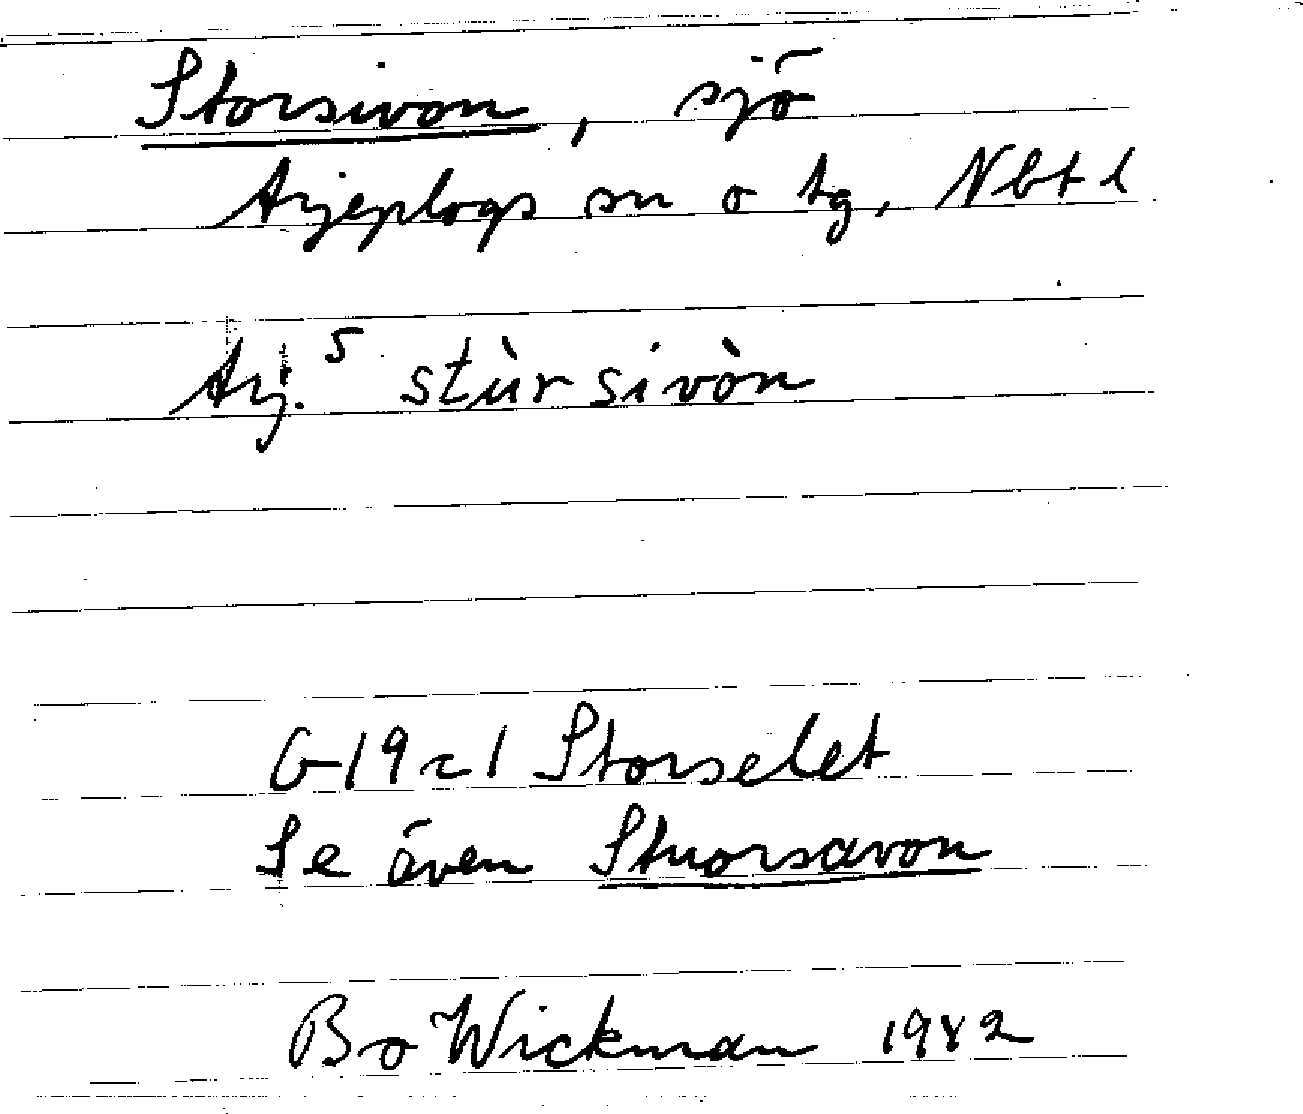 Storsivon, sjö
Arjeplogs sn o tg, Nbt l
Arj. S stùr sivòn
G 19 c 1 Storselet
Se även Stuorsavon
Bo Wickman 1982